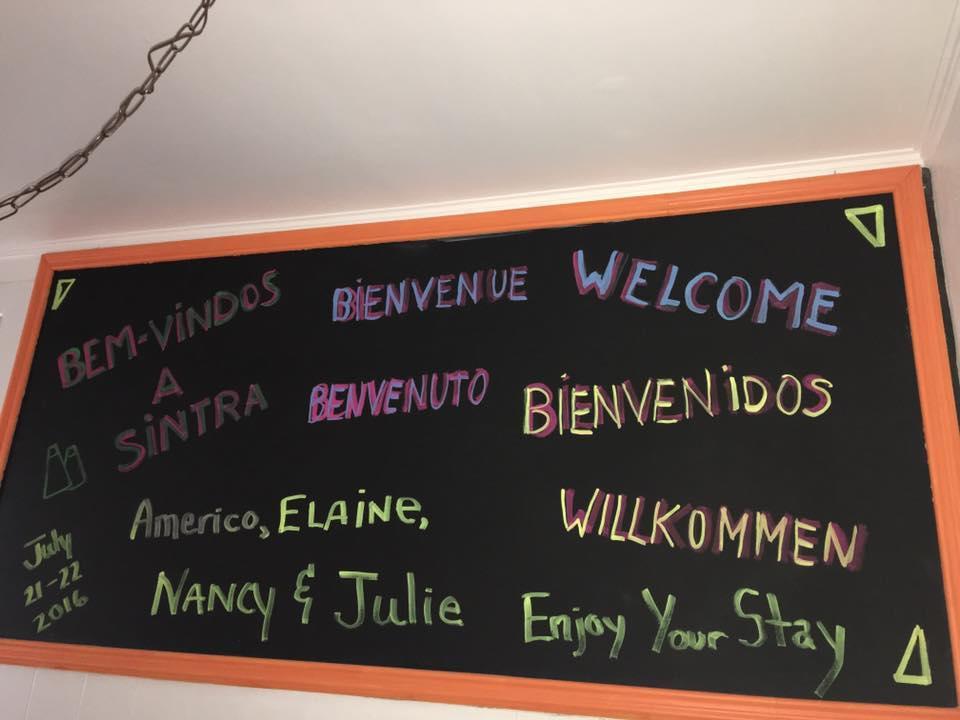 BEM-ViNDOS
A
SiNTRA
BiENVENUE
WELCOME
BENVENUTO
BiENVENiDOS
WILLKOMMEN
Americo, ELAiNe,
NANCY & Julie
Enjoy Your Stay
July
21-22
2016